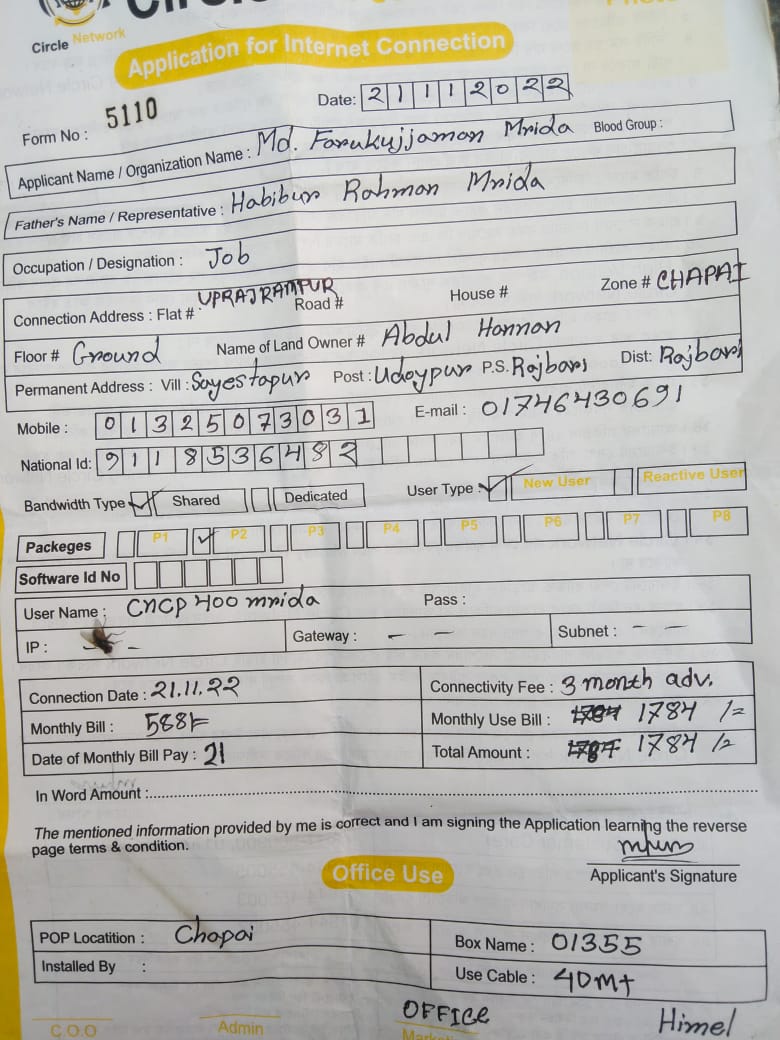 Circle Network
Application for Internet Connection
Form No : 5110
Date: 21112022
Applicant Name / Organization Name : Md. Farukujjaman Mrida Blood Group :
Father's Name / Representative : Habibur Rahman Mrida
Occupation / Designation : Job
Connection Address : Flat # UPRAJRAMPUR Road # House # Zone # CHAPAI
Floor # Ground Name of Land Owner # Abdul Hannan
Permanent Address : Vill : Sayestapur Post : Udaypur P.S. Rajbari Dist: Rajbari
Mobile : 01325073031 E-mail : 01746430691
National Id: 9118536482
Bandwidth Type Shared Dedicated User Type : New User Reactive User
Packeges P1 P2 P3 P4 P5 P6 P7 P8
Software Id No
User Name : CNCP400mrida Pass :
IP : - Gateway : - - Subnet : - -
Connection Date : 21.11.22 Connectivity Fee : 3 month adv.
Monthly Bill : 588/= Monthly Use Bill : 1784 /=
Date of Monthly Bill Pay : 21 Total Amount : 1784 /=
In Word Amount :
The mentioned information provided by me is correct and I am signing the Application learning the reverse
page terms & condition.
Applicant's Signature
Office Use
POP Locatition : Chapai Box Name : 01355
Installed By : Use Cable : 40mt
OFFICE Himel
C.O.O Admin